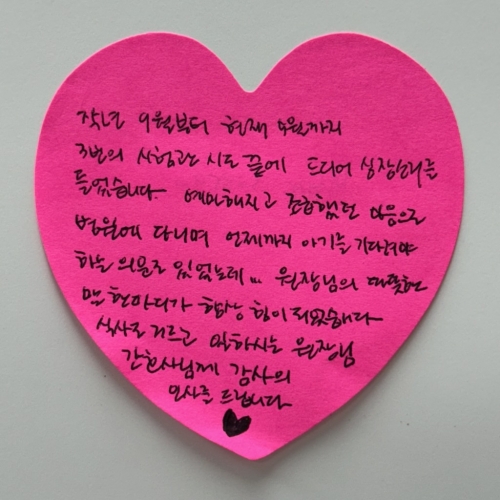 작년 9월부터 현재 4월까지
3번의 시험관 시도 끝에 드디어 심장소리를
들었습니다. 예민해지고 초조했던 마음으로
병원에 다니며 언제까지 아기를 기다려야
하는 의문도 있었는데... 원장님의 따뜻한
말 한마디가 항상 힘이 되었습니다
식사도 거르고 일하시는 원장님
간호사님께 감사의
인사를 드립니다